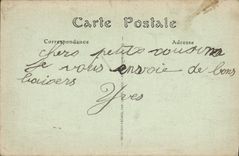 Carte Postale
Correspondance
Adresse
chers petits cousins
Je vous envoie de bons
baisers
Yves